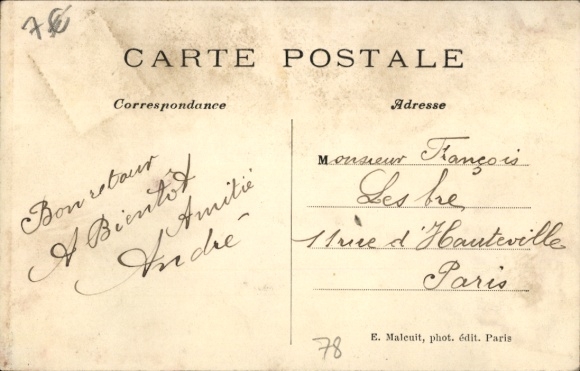 78
CARTE POSTALE
Correspondance
Adresse
Bon retour
A Bientôt
Amitié
André
Monsieur François
Lesbre
11 rue d'Hauteville
Paris
E. Malcuit, phot. édit. Paris
78